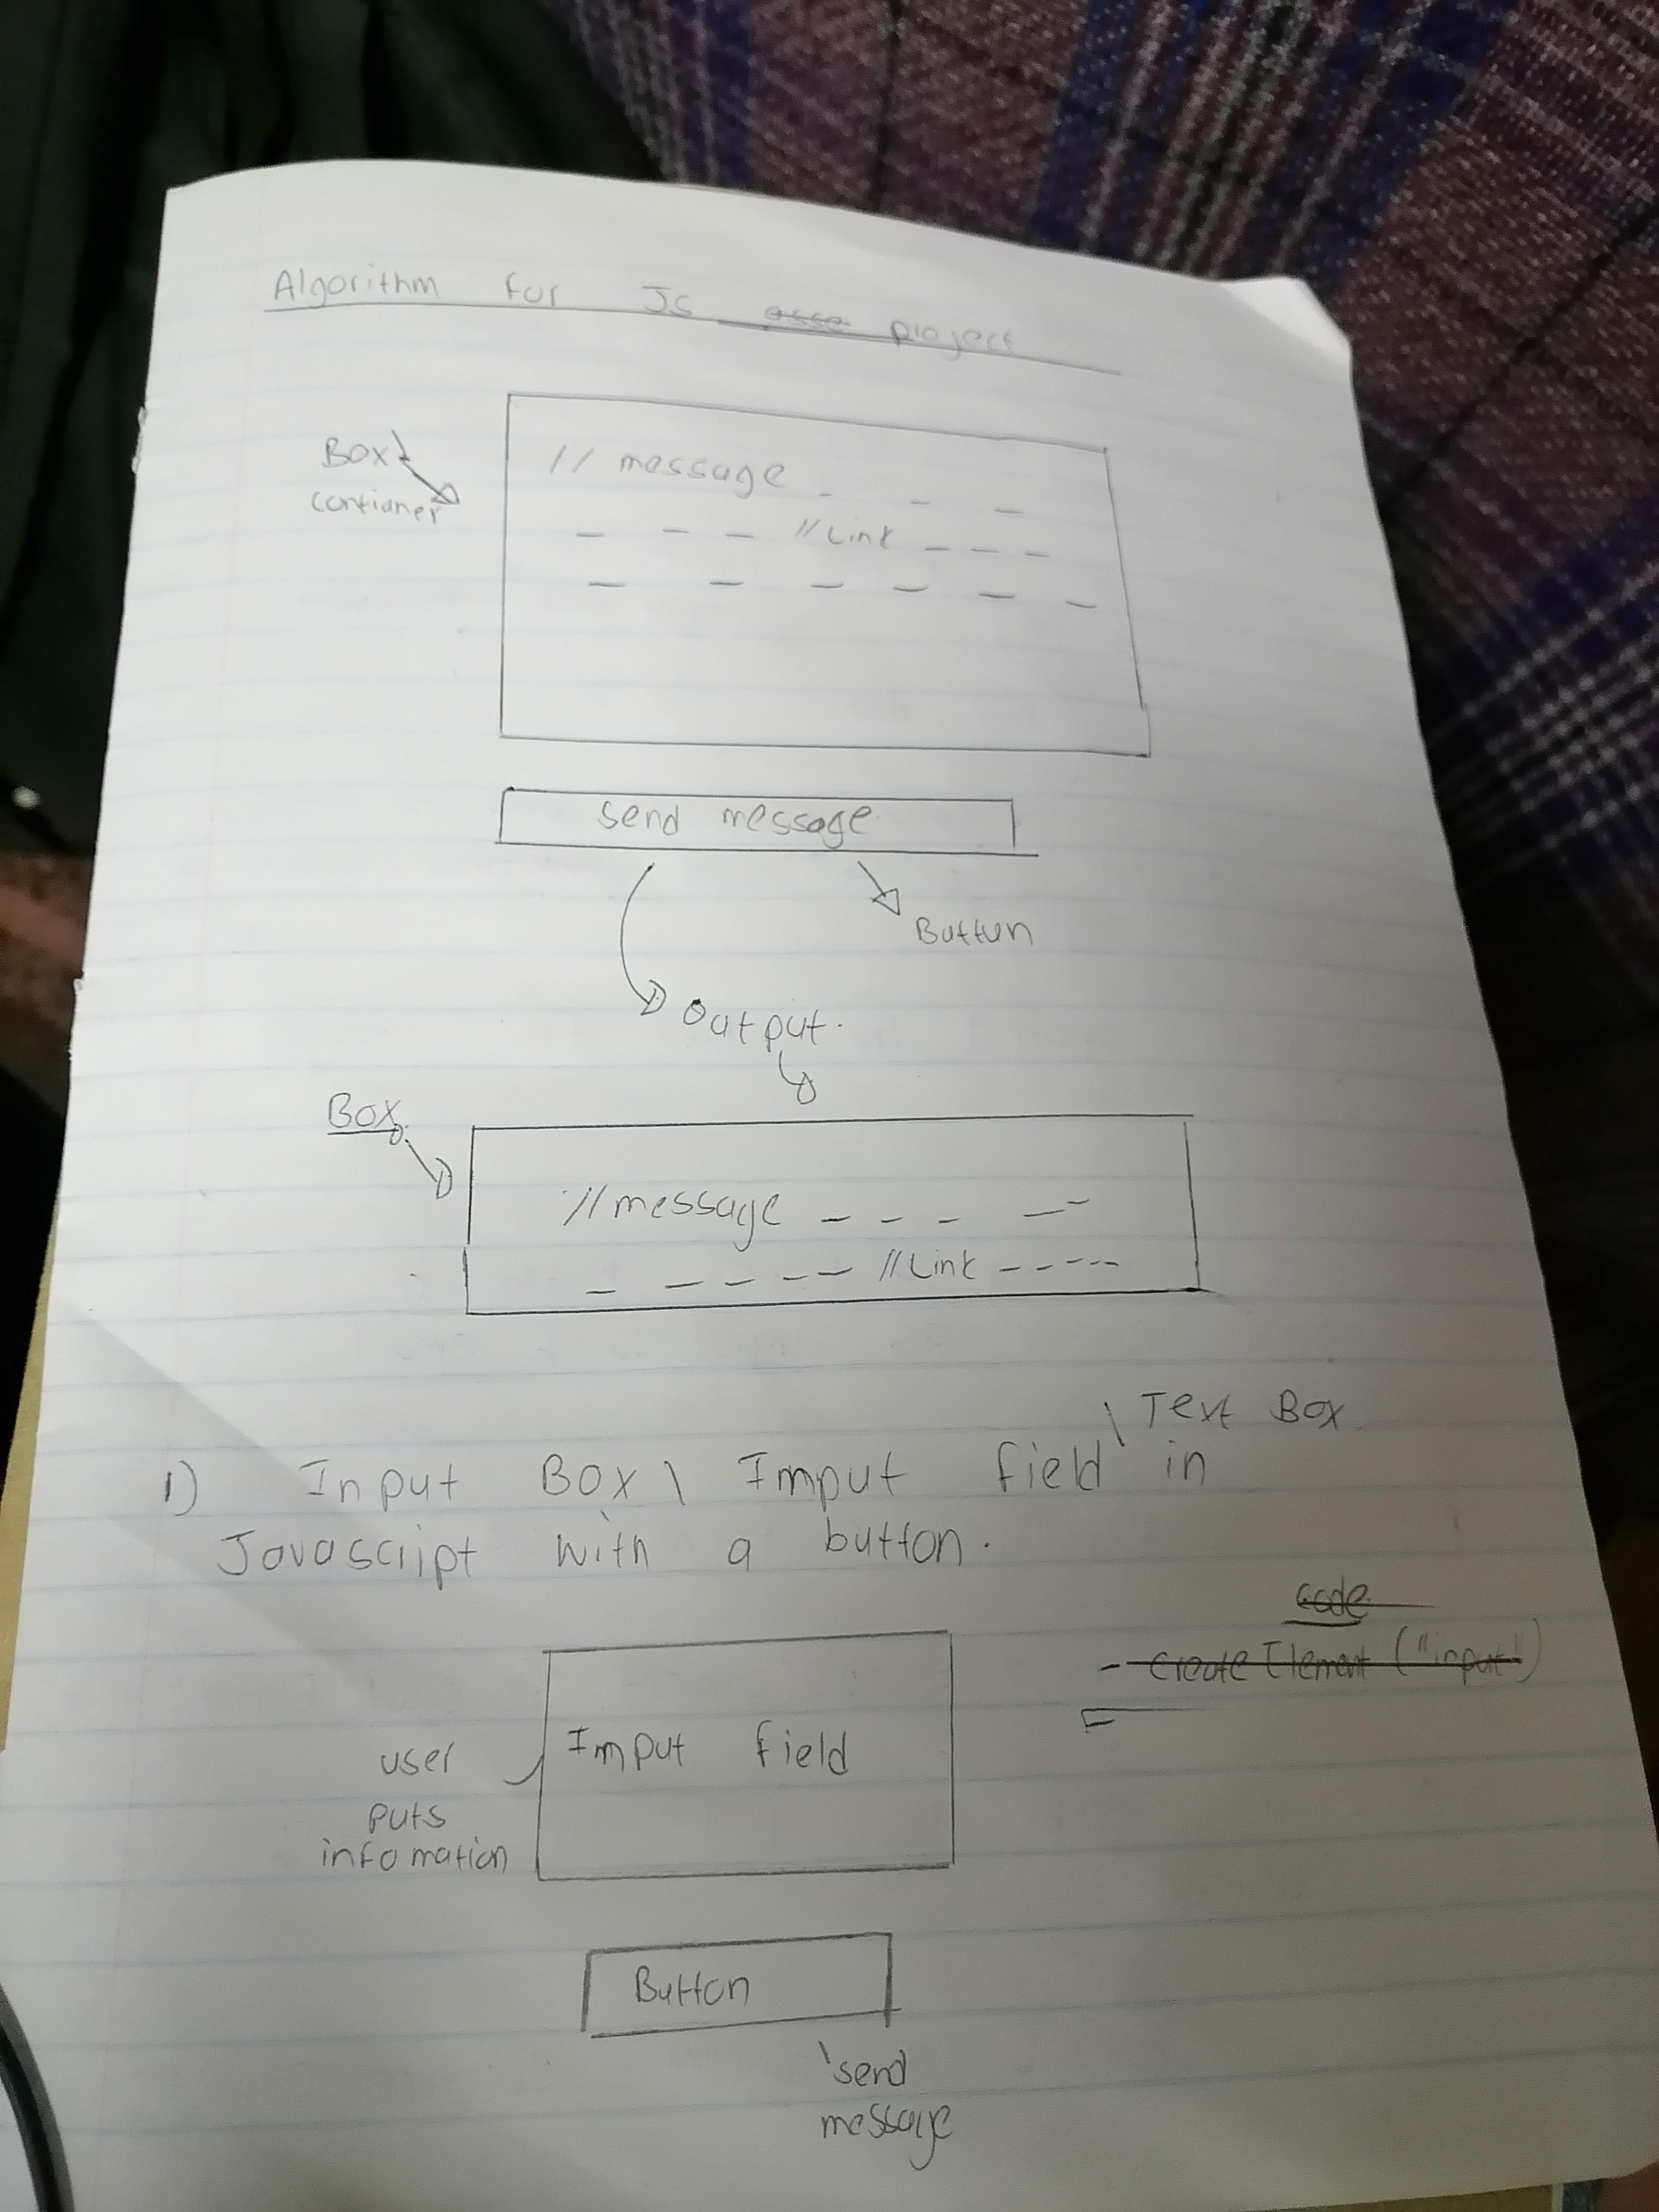 Algorithm for JS asse project
Box
Contianer
// message _ _ _
_ _ _ // Link _ _ _
_ _ _ _ _ _
send message
Button
Output.
Box
// message _ _ _ _ _
_ _ _ _ _ // Link - - - - -
\ Text Box
1) Input Box \ Imput field in
Javascript with a button.
code
- Create Element ("input")
user
puts
infomation
Imput field
Button
send
message